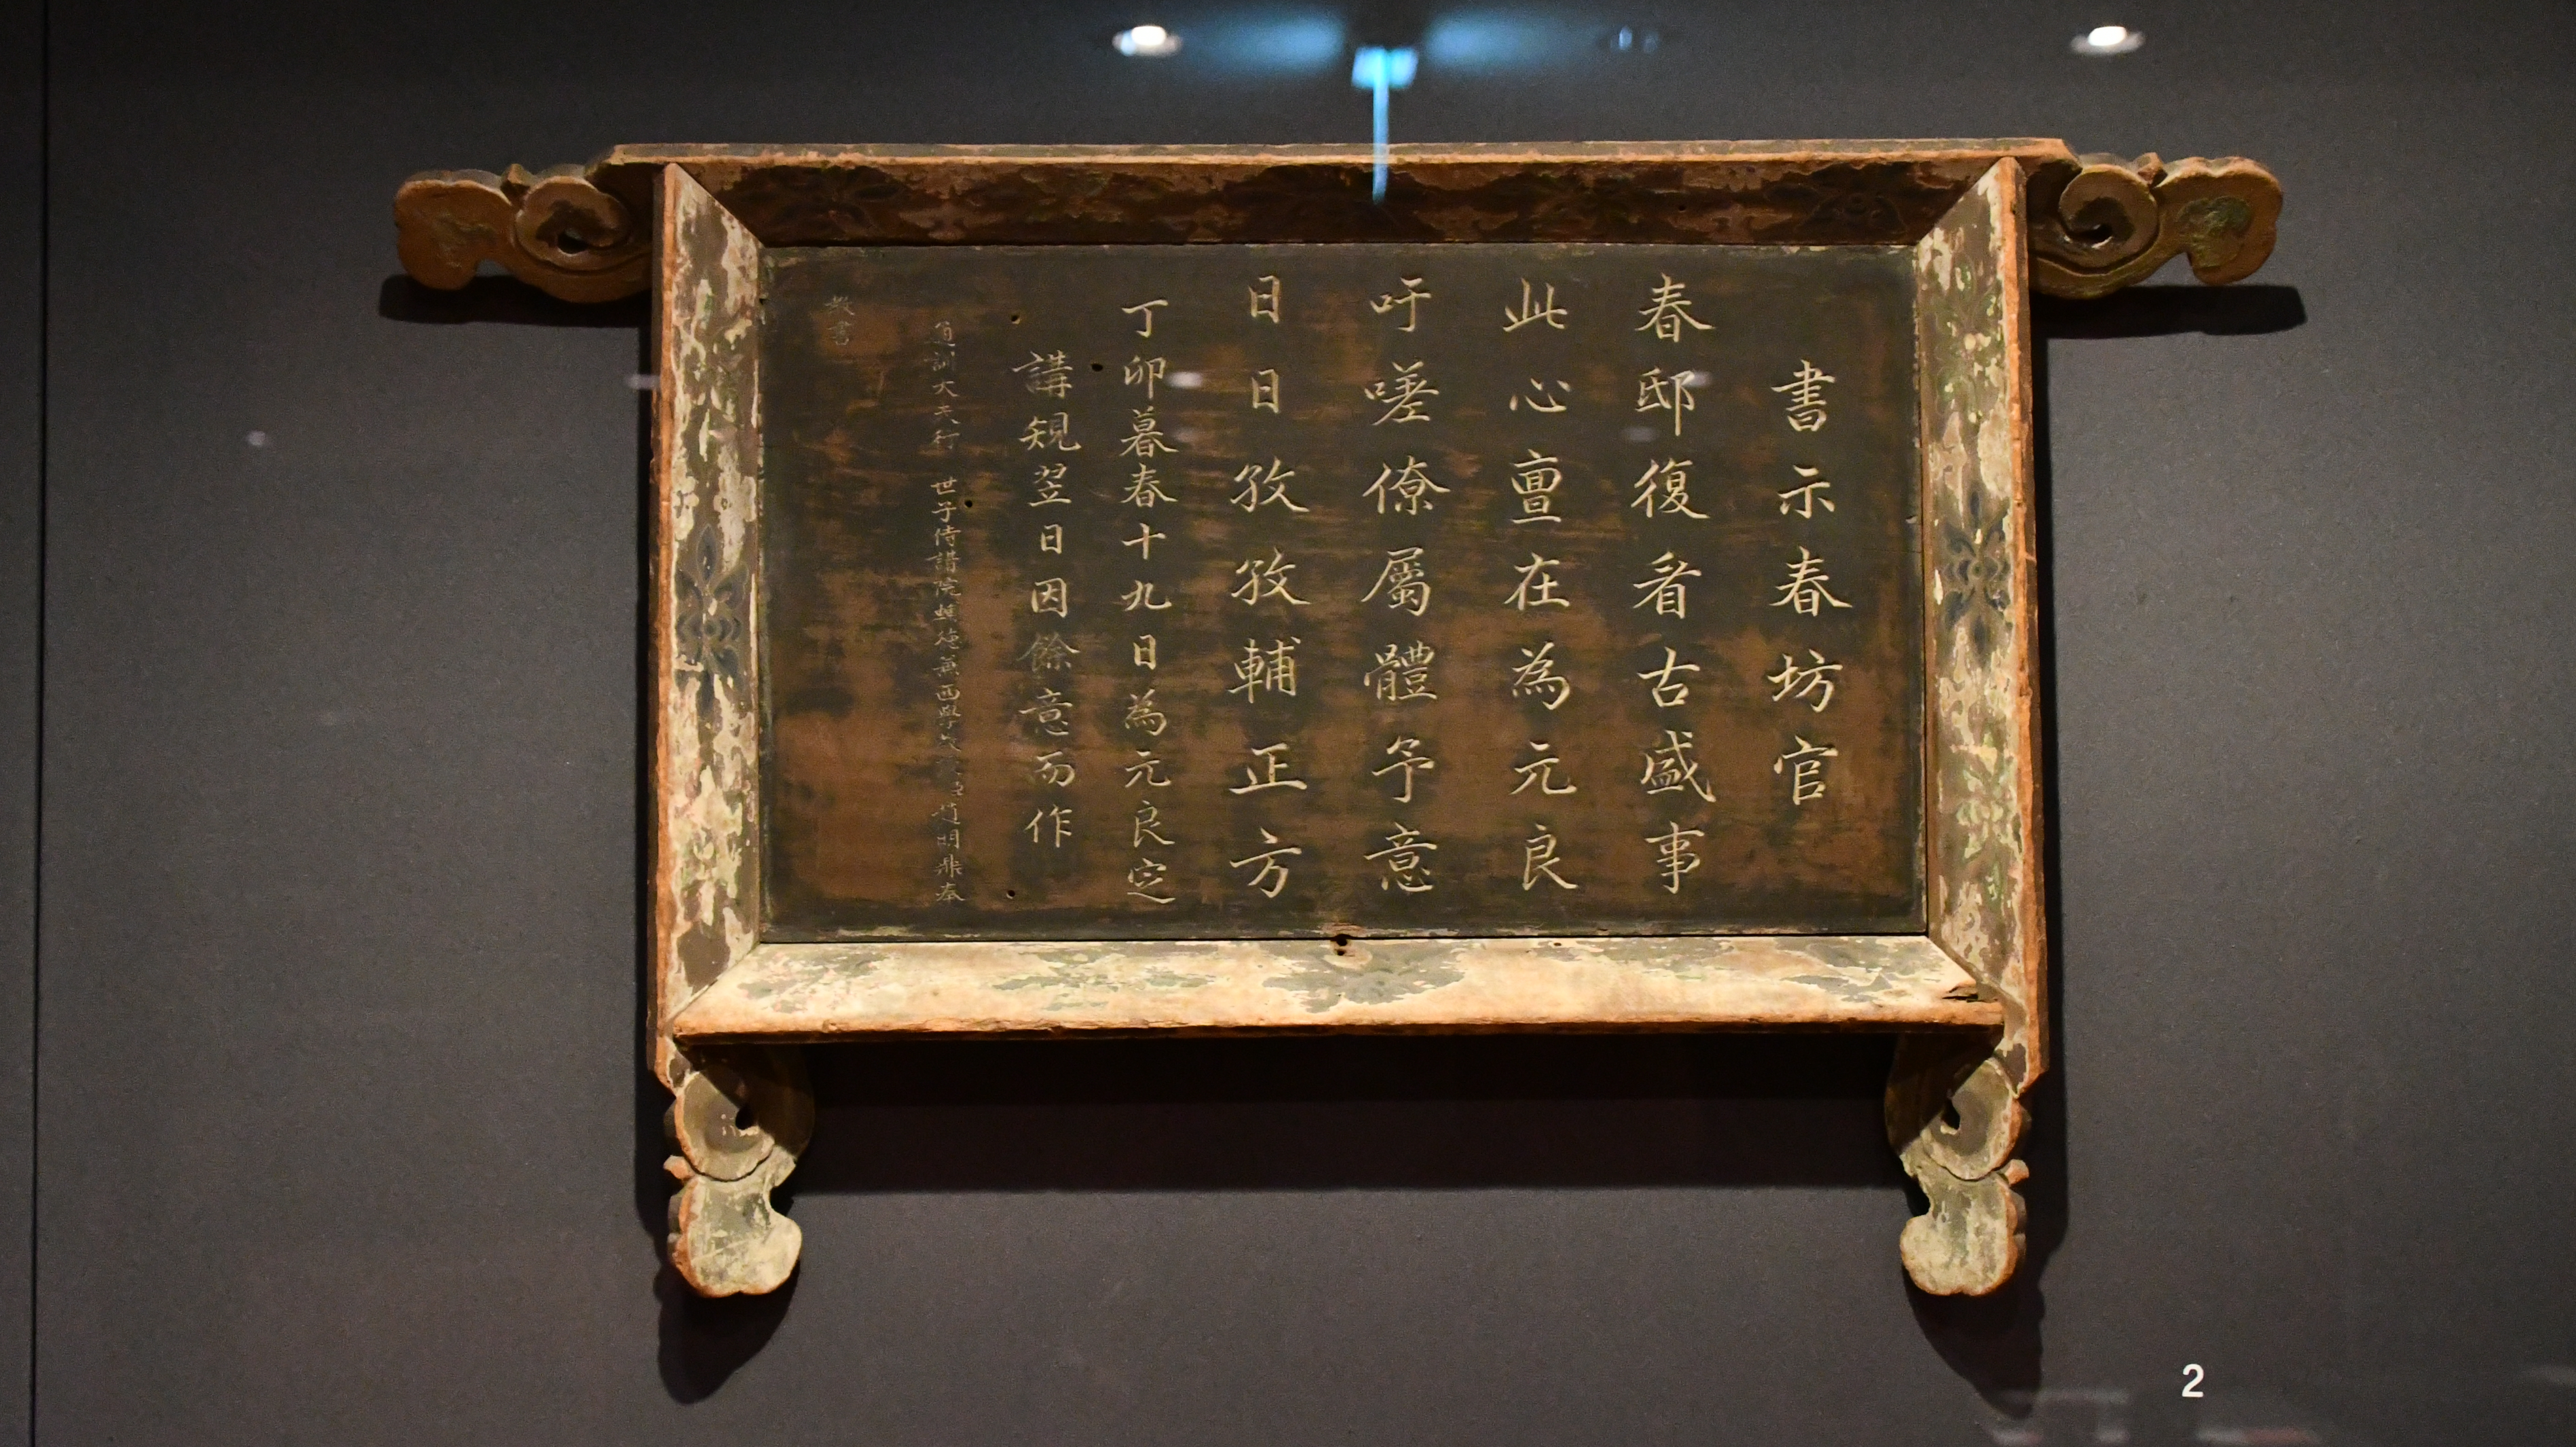 書示春坊官
春邸復看古盛事
此心亶在為元良
吁嗟僚屬體予意
日日孜孜輔正方
丁卯暮春十九日為元良定
講規翌日因餘意而作
通訓大夫行 世子侍講院輔德兼西學 趙明鼎奉
教書
2